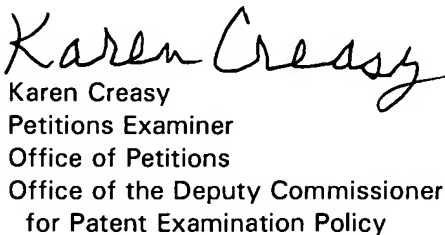 Karen Creasy
Karen Creasy
Petitions Examiner
Office of Petitions
Office of the Deputy Commissioner
for Patent Examination Policy